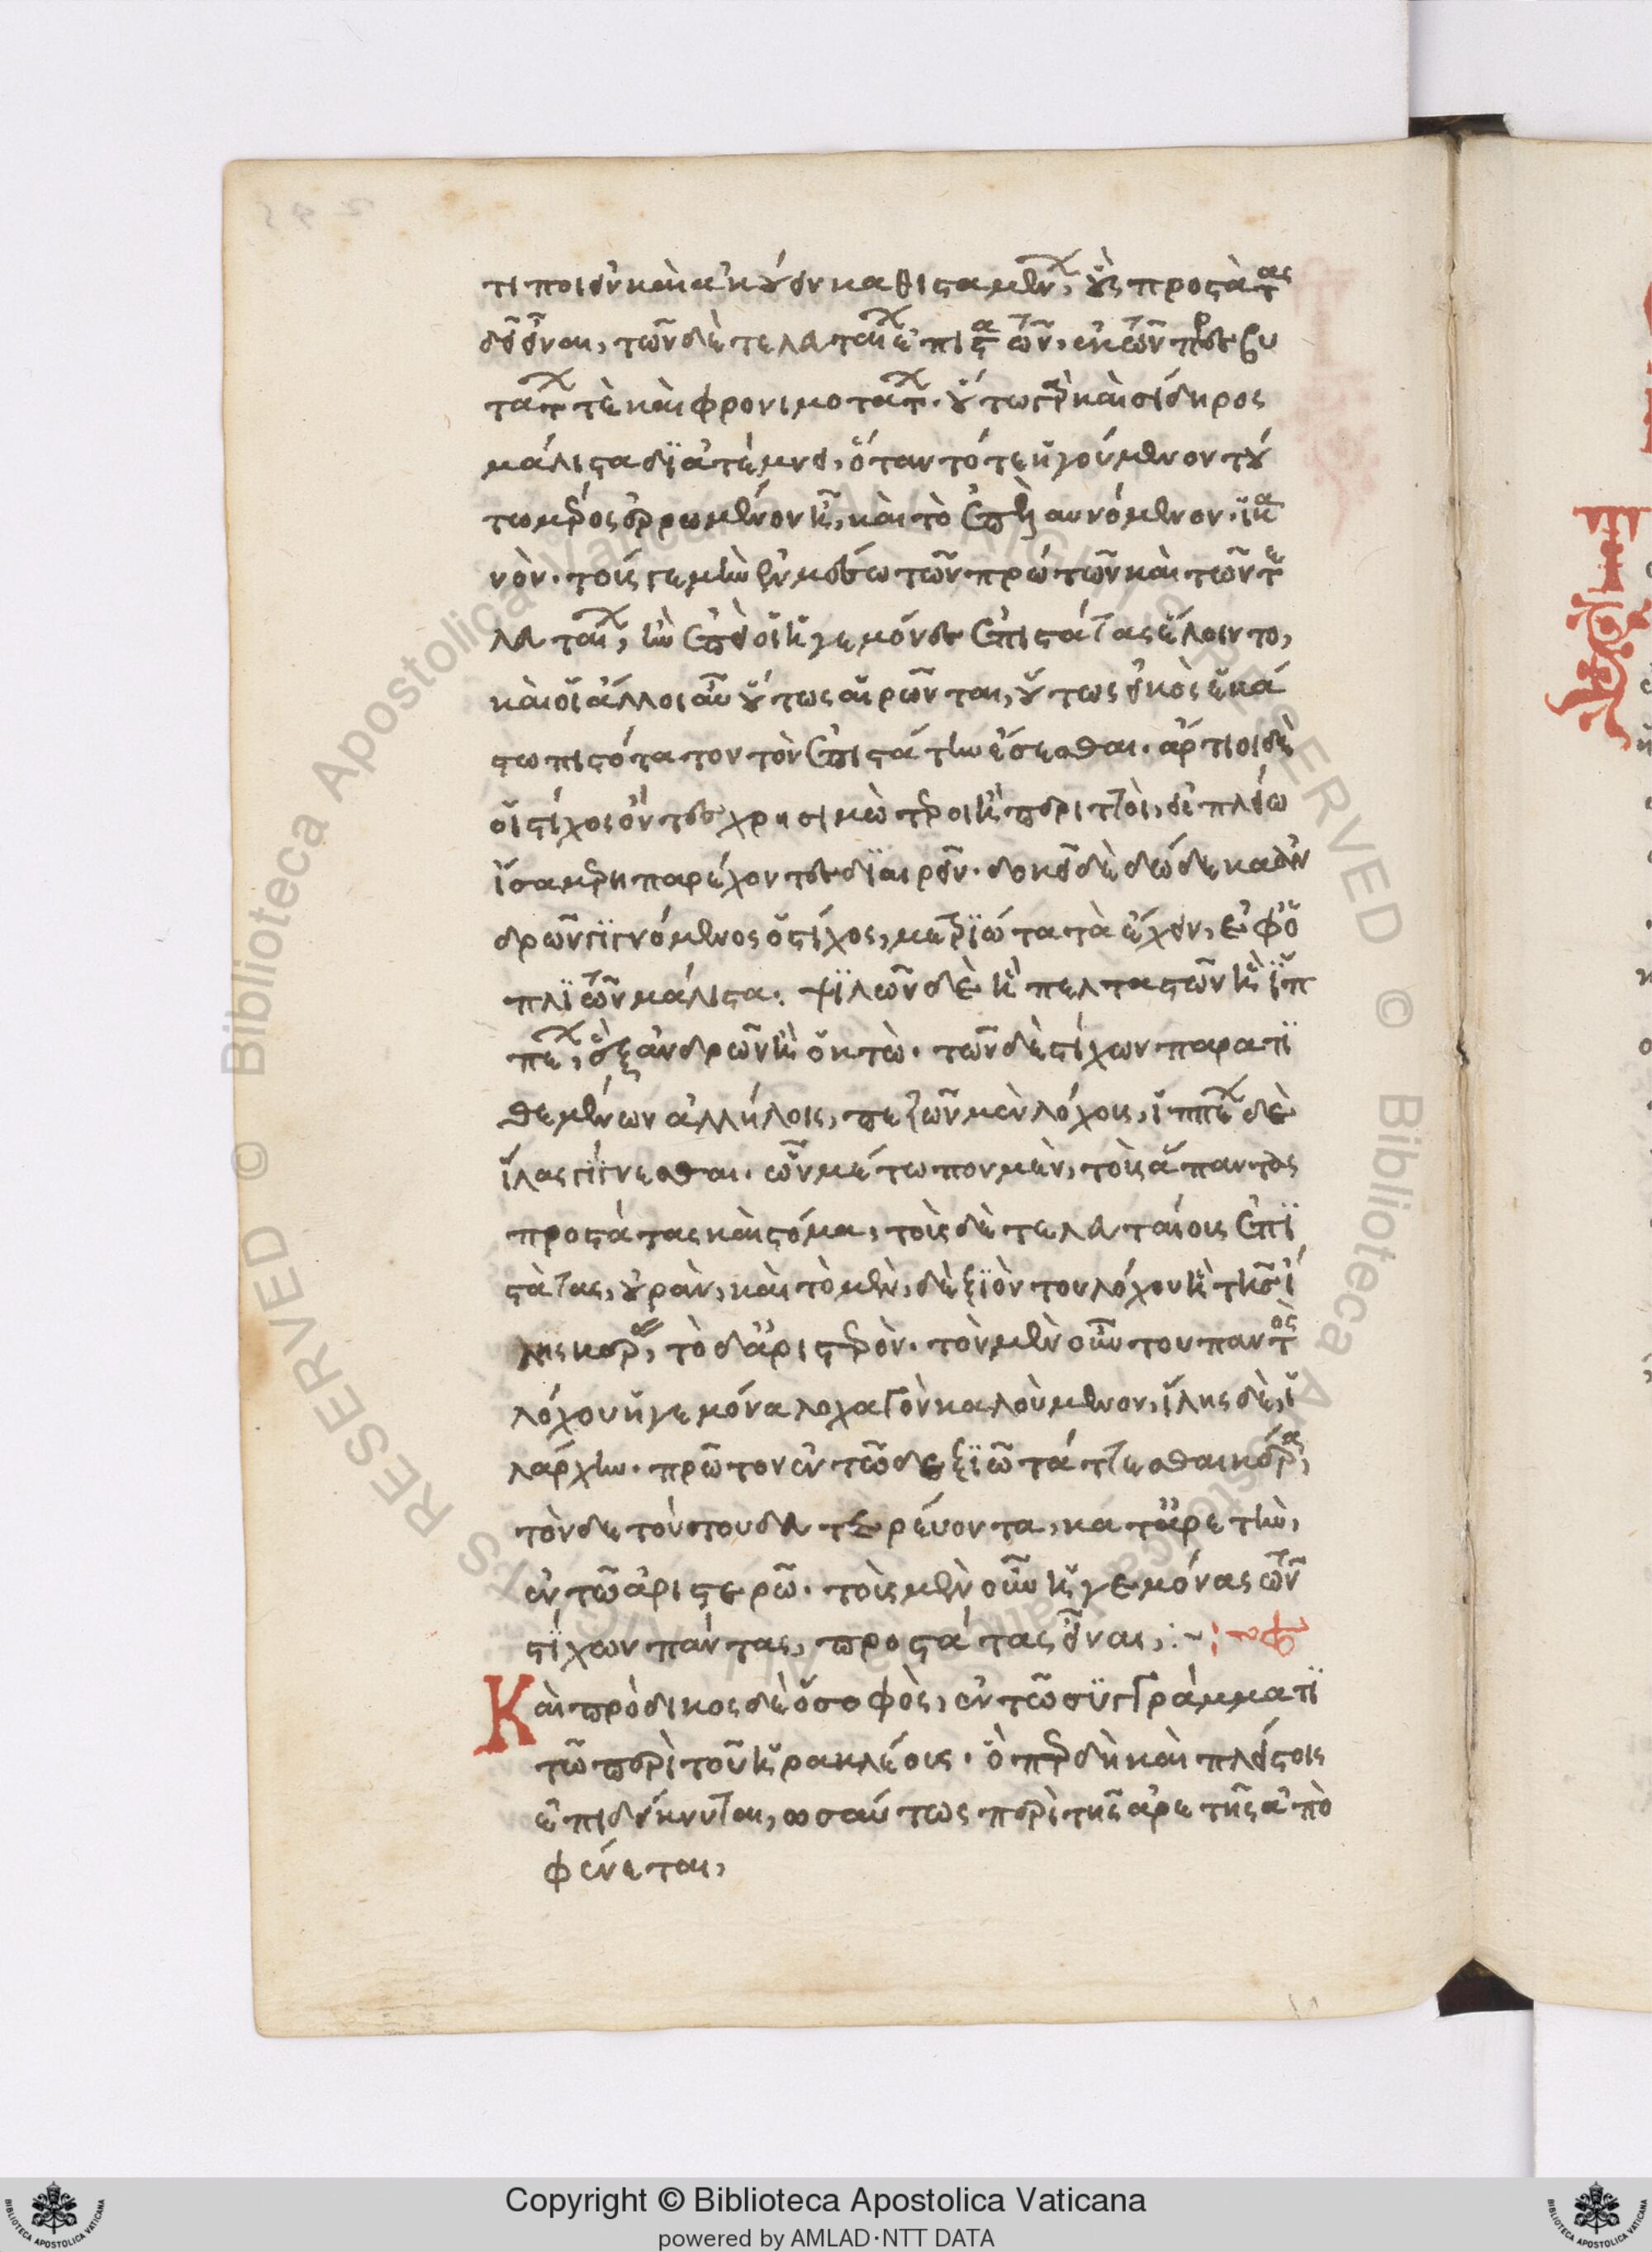 τι ποιεῖν καὶ ἀκούειν καθισταμένους, οὓς προστάτας
δεῖ εἶναι, τῶν δὲ τελευταίους ἐπιστατῶν. ἐκ τῶν πρεσβυ
τάτους τὲ καὶ φρονιμοτάτους. οὕτω γὰρ καὶ σίδηρος
μάλιστα διατέμνει, ὅταν τό τε ἡγούμενον τού
του μέρος ἐρρωμένον ἦ, καὶ τὸ ἐπελαυνόμενον. ἱκα
νόν. τοῖς γε μὴν ἐν μέσω τῶν πρώτων καὶ τῶν τε
λευταίους, ἢν ἐπεὶ οἱ ἡγεμόνες ἐπιστάτας ἕλοιντο,
καὶ οἱ ἄλλοι ἂν οὕτως αἱρῶνται, οὕτως εἰκὸς ἑκά
στω πιστότατον τὸν ἐπιστάτην ἔσεσθαι. ἄρτιοι δὲ
οἱ στίχοι ὄντες χρησιμώτεροι ἢ περιττοὶ, εἰ πλείω
ἴσα μέρη παρέχοντες διαιρεῖν. δοκεῖ δὲ δώδεκα ἀν
δρῶν γιγνόμενος ὁ στίχος, μετριώτατα ἔχειν, ἐφ' ὁ
πλιτῶν μάλιστα. ψιλῶν δὲ ἢ πελταστῶν ἢ ἱπ
πέων, ἐξ ἀνδρῶν ἢ ὀκτὼ. τῶν δὲ στίχων παρατι
θεμένων ἀλλήλοις, πεζῶν μὲν λόχοις, ἱππέων δὲ
ἴλας γίγνεσθαι. ὧν μέτωπον μὲν, τοὺς ἅπαντας
προστάτας καὶ στόμα, τοὺς δὲ τελευταίους ἐπι
στάτας, οὐρὰν, καὶ τὸ μὲν, δεξιὸν του λόχου ἢ τῆς ἴ
λης κέρας, τὸ δ' ἀριστερὸν. τὸν μὲν οὖν του παντὸς
λόχου ἡγεμόνα λοχαγὸν καλούμενον, ἴλης δὲ, ἰ
λάρχην. πρῶτον ἐν τῶ δεξιῶ τάττεσθαι κέρα,
τὸν δε τούτου δευτερεύοντα, κατ' ἀρετὴν,
ἐν τῶ ἀριστερῶ. τοὺς μὲν οὖν ἡγεμόνας τῶν
στίχων πάντας, προστάτας εἶναι, :~
Καὶ πρόδικος δὲ ὁ σοφὸς, ἐν τῶ συγγράμματι
τῶ περὶ τοῦ ἡρακλέους. ὅπερ δὴ καὶ πλείστοις
ἐπιδείκνυται, ωσαύτως περὶ τῆς ἀρετῆς ἀπο
φαίνεται,
Copyright © Biblioteca Apostolica Vaticana
powered by AMLAD·NTT DATA